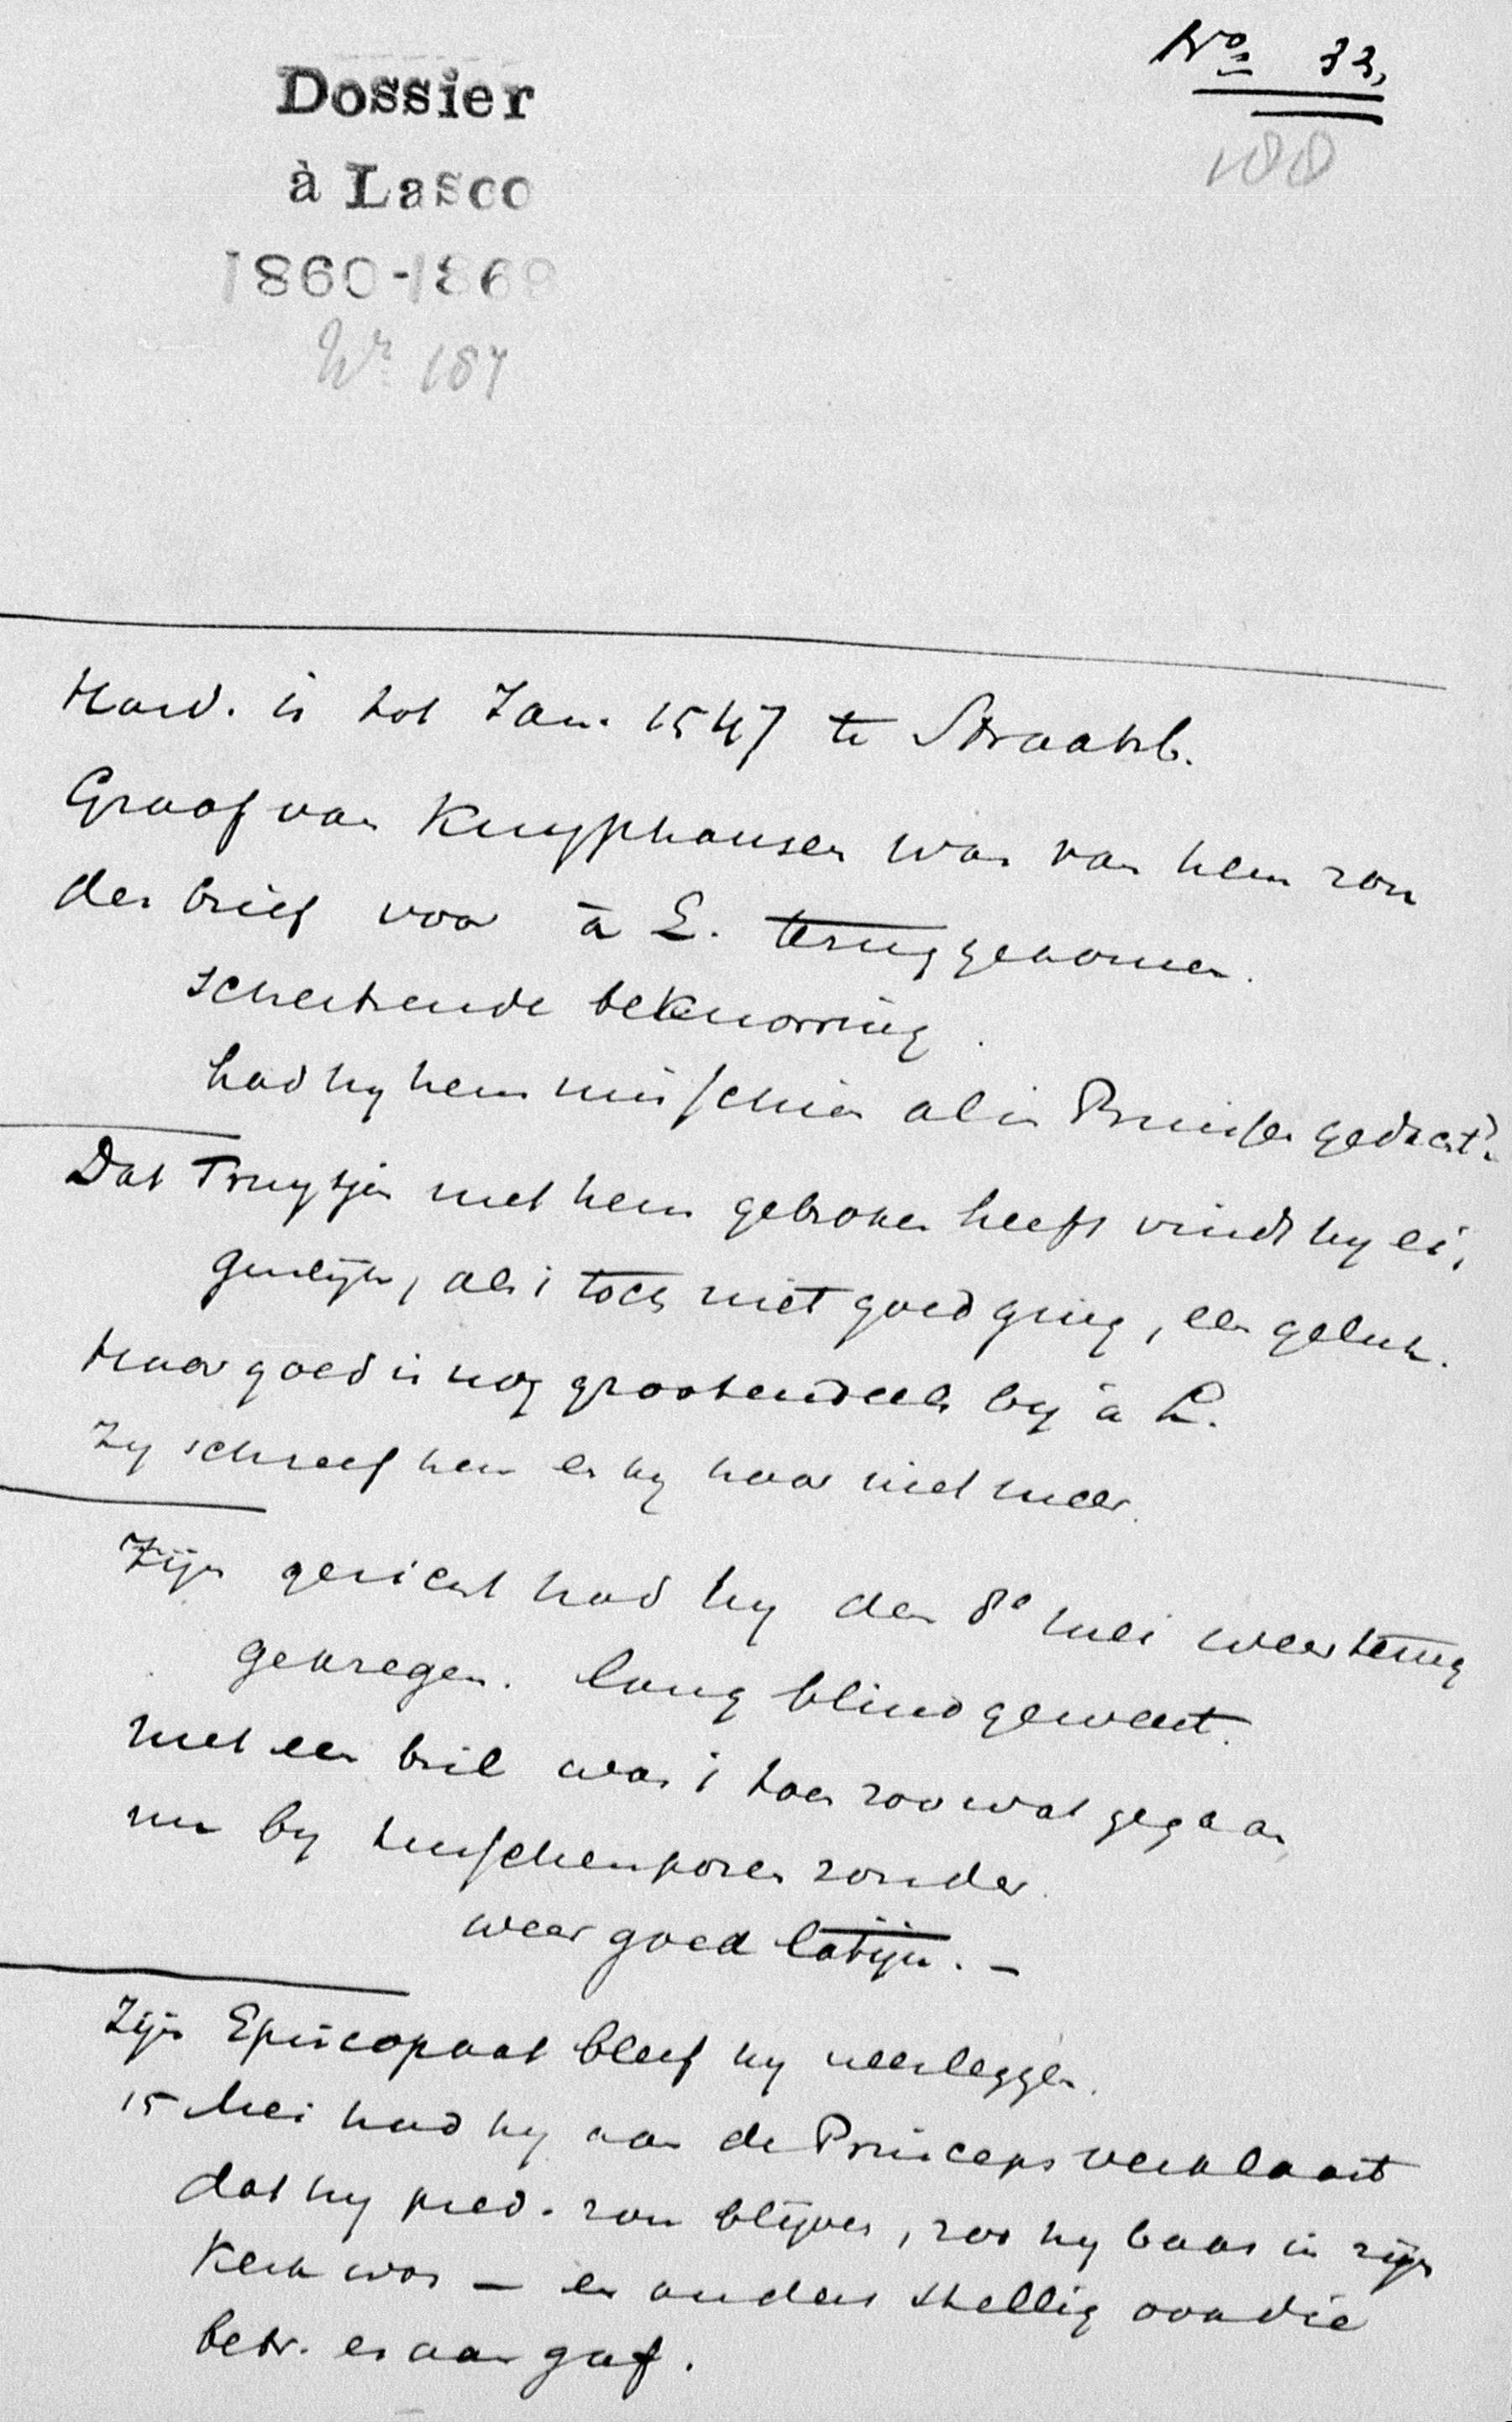 No. 33,
188
Dossier
à Lasco
1860-1869
Nr. 187
Hard. is tot Jan. 1547 te Straatsb.
Graaf van Knyphausen was van hem zon
der brief voor à L. teruggekomen.
schertsende beknorring.
had hy hem misschien al in Pruisen gedacht?
Dat Truytjen met hem gebroken heeft vindt hy ei,
genlijk, als i toch niet goed ging, een geluk.
Haar goed is nog grootendeels by à L.
Zy schreef hem en hy haar niet meer.
Zijn gezicht had hy den 8e Mei weer terug
gekregen. lang blind geweest.
met een bril was i toen zoo wat gegaan,
nu by tusschenpozen zonder.
weer goed latijn. –
Zijn Episcopaat bleef hy neerleggen.
15 Mei had hy aan de Princeps verklaart
dat hy pred. zou blijven, zoo hy baas in zijn
Kerk was – en anders stellig ook die
betr. er aan gaf.